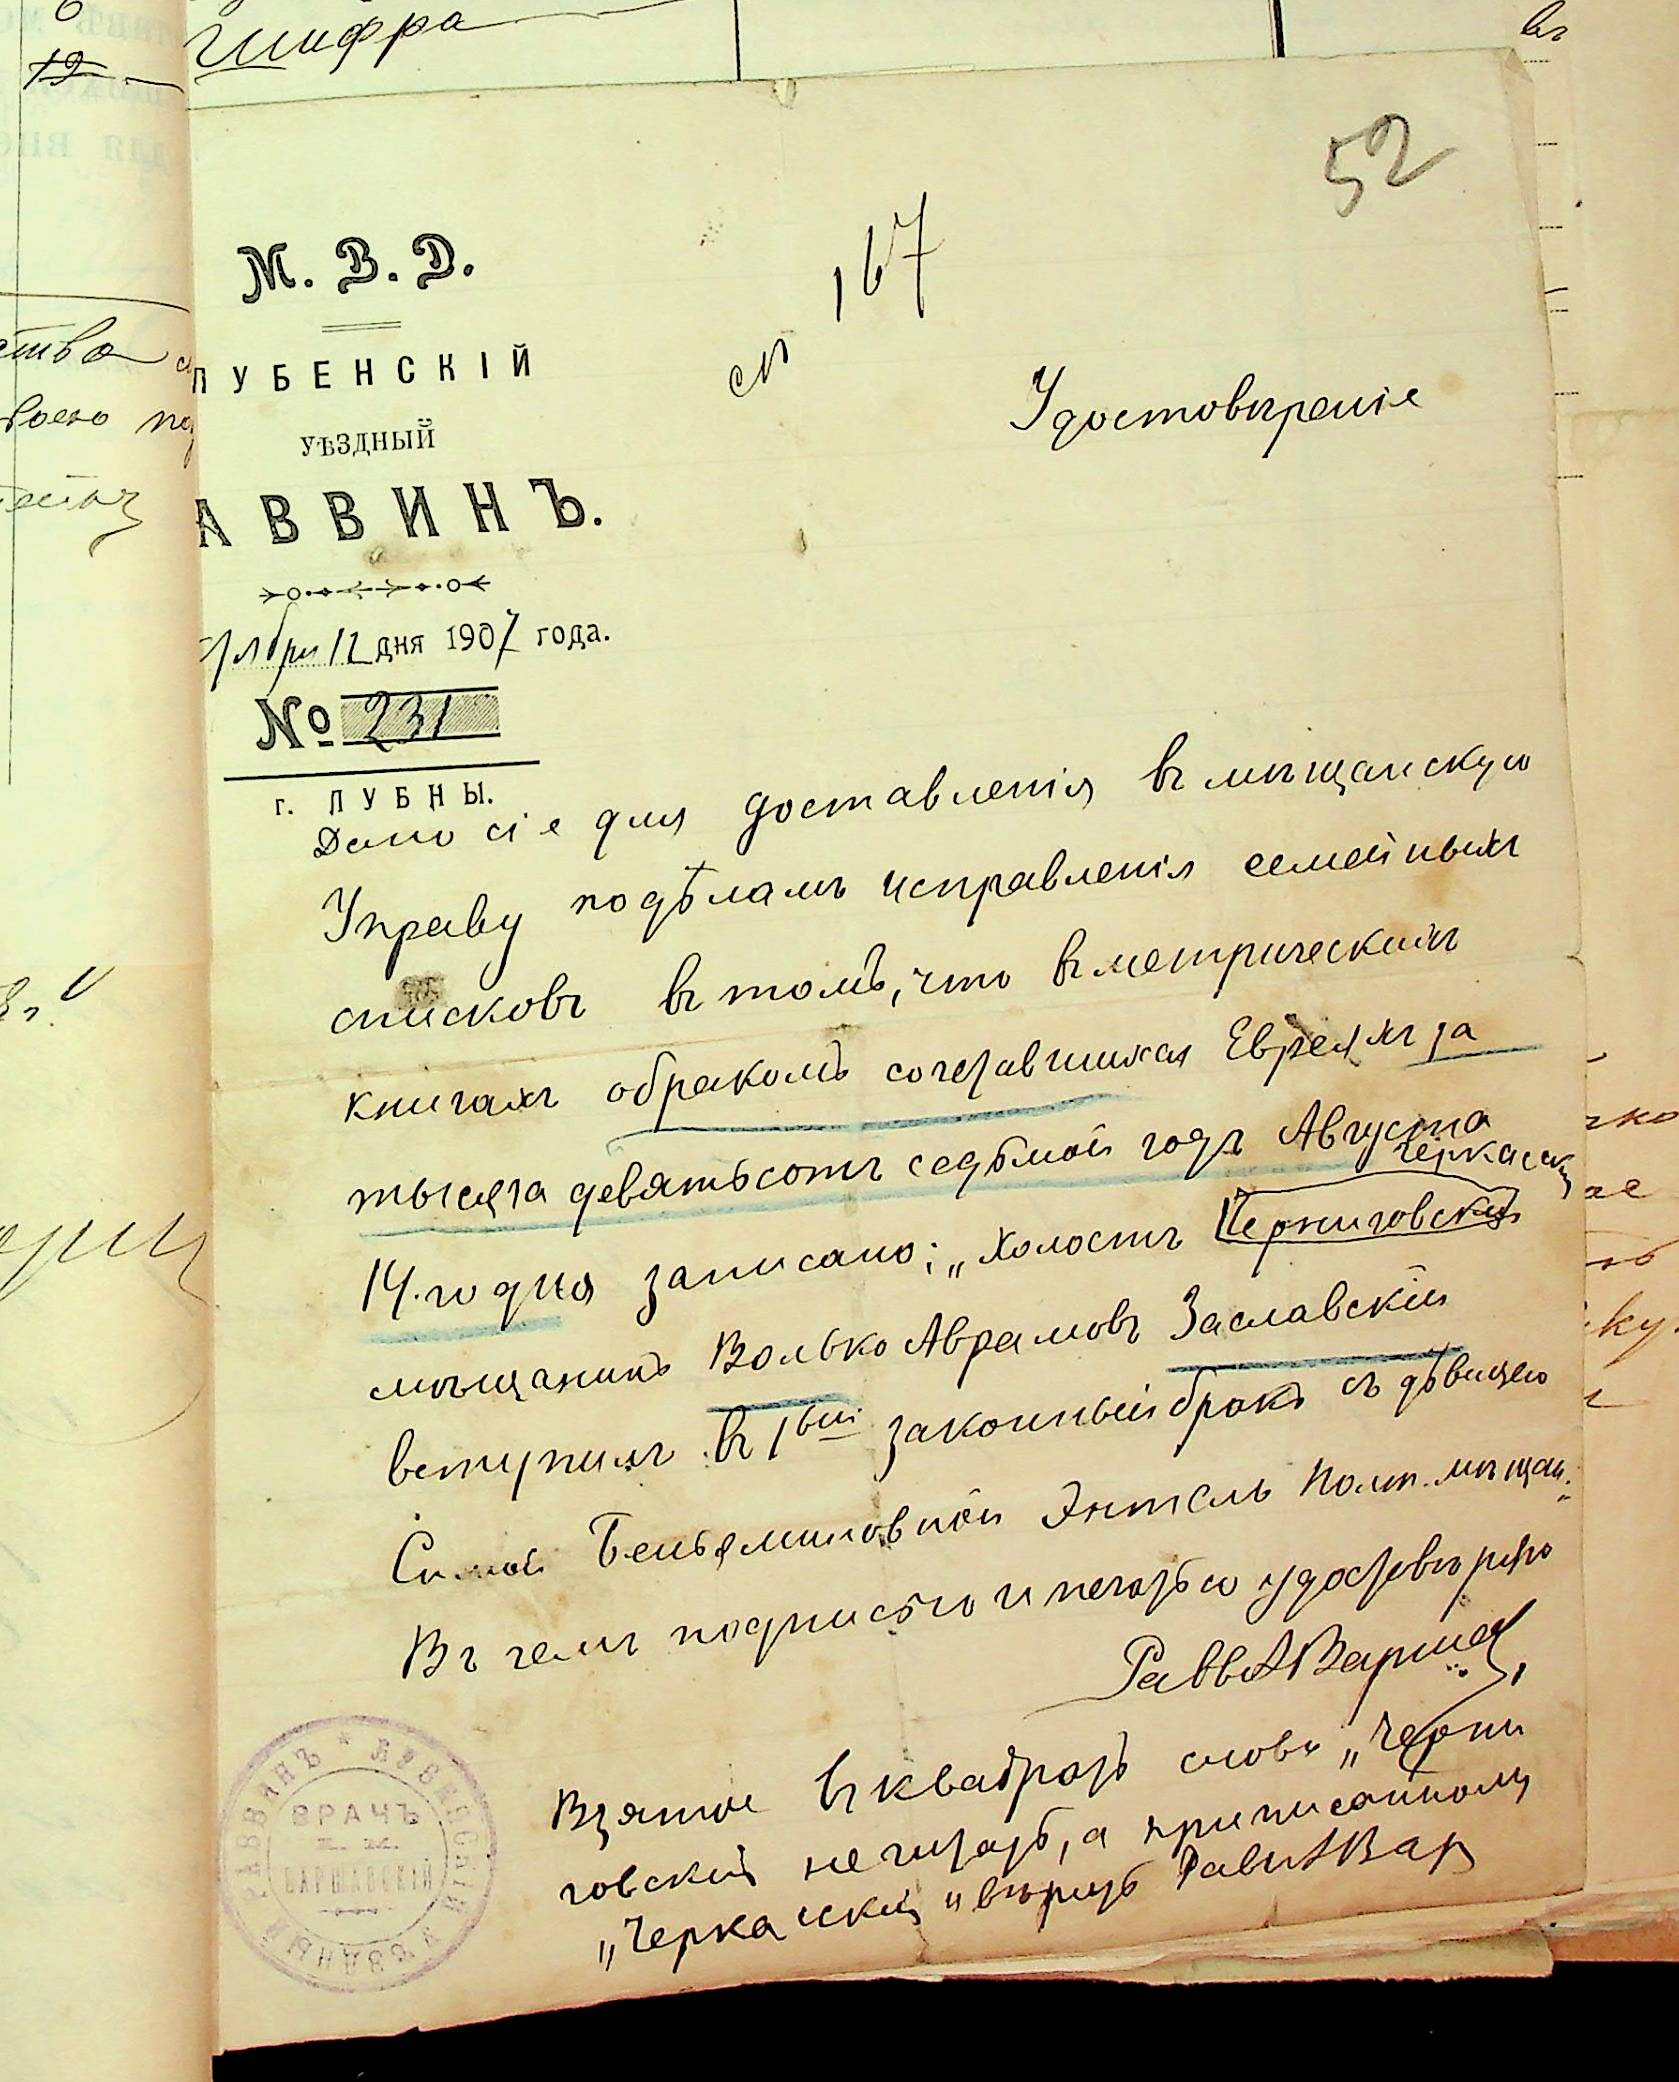 Шифра
12
въ
52
М. В. Д.
ЛУБЕНСКІЙ
УѢЗДНЫЙ
АВВИНЪ.
бря 12 дня 1907 года.
№ 231
г. ЛУБНЫ.
№ 167
Удостовѣреніе
ство
воего
Дано сіе для доставленія въ мѣщанскую
Управу по дѣламъ исправленія семейныхъ
списковъ въ томъ, что въ метрическихъ
книгахъ о бракомъ сочетавшихся Евреяхъ за
тысяча девятьсотъ седьмой годъ Августа
Черкасскій
14.го дня записано: „Холостъ Черниговскій
мѣщанинъ Волько Аврамовъ Заславскій
вступилъ въ 1вый законный бракъ съ дѣвицею
Симой Беньяминовной Энтель Полт. мѣщан.
Въ чемъ подписью и печатью удостовѣряю
Равв А Варшав
Взятое въ квадратъ слово „Черни
говскій не читать, а приписанному
„Черкасскій" вѣрить Равв А Вар
ЛУБЕНСКІЙ УѢЗДНЫЙ РАВВИНЪ *
ВРАЧЪ
ВАРШАВСКІЙ